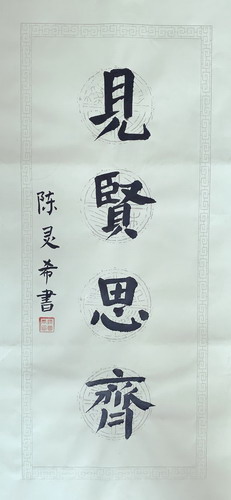 見賢思齊
陈灵希書